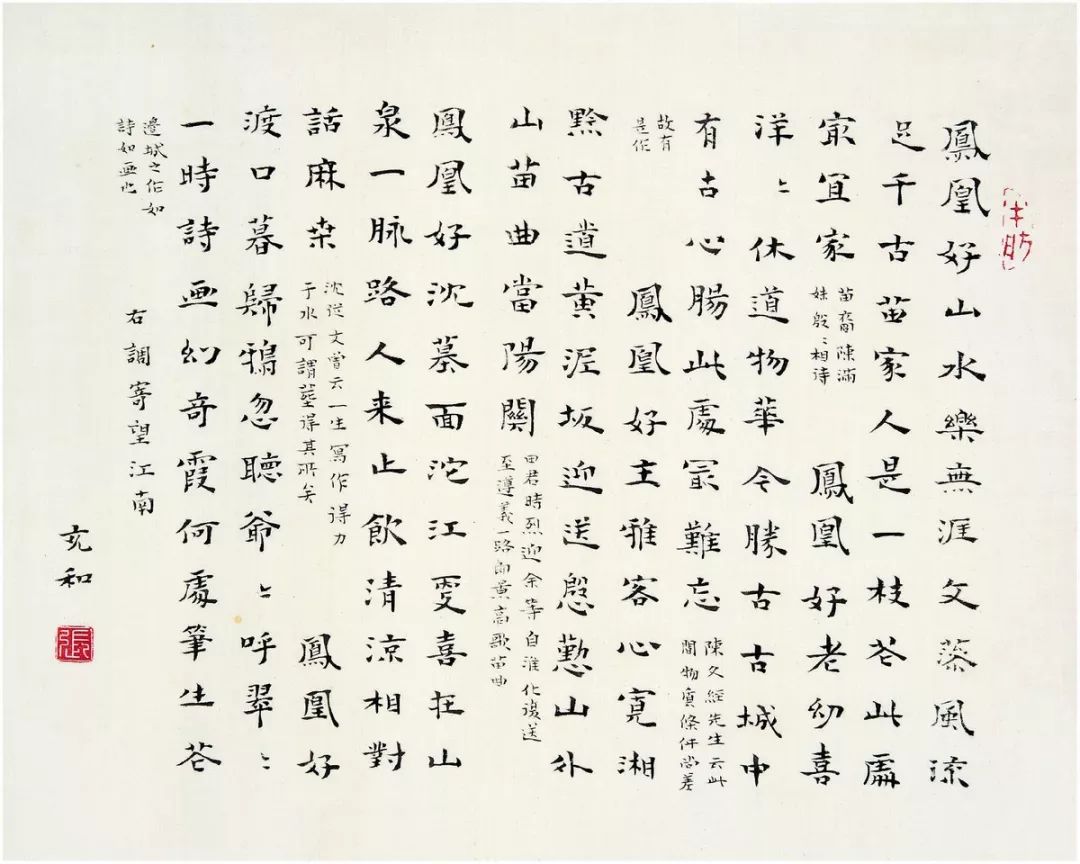 鳳凰好山水樂無涯文藻風流
足千古苗家人是一枝花此處
最宜家
苗裔陳滿
妹殷〻相待
鳳凰好老幼喜
洋〻休道物華今勝古古城中
有古心腸此處最難忘
陳文經先生云此
間物質條件尚差
故有
是作
鳳凰好主雅客心寬湘
黔古道黃泥坂迎送慇懃山外
山苗曲當陽關
田君時烈迎余等自淮化復送
至遵義一路郎黃高歌苗曲
鳳凰好沈墓面沱江更喜在山
泉一脉路人来止飲清涼相對
話麻桒
沈從文曾云一生寫作得力
于水可謂葬得其所矣
鳳凰好
渡口暮歸鴉忽聽爺〻呼翠〻
一時詩画幻奇霞何處筆生花
邊城之作如
詩如画也
右調寄望江南
充和
張